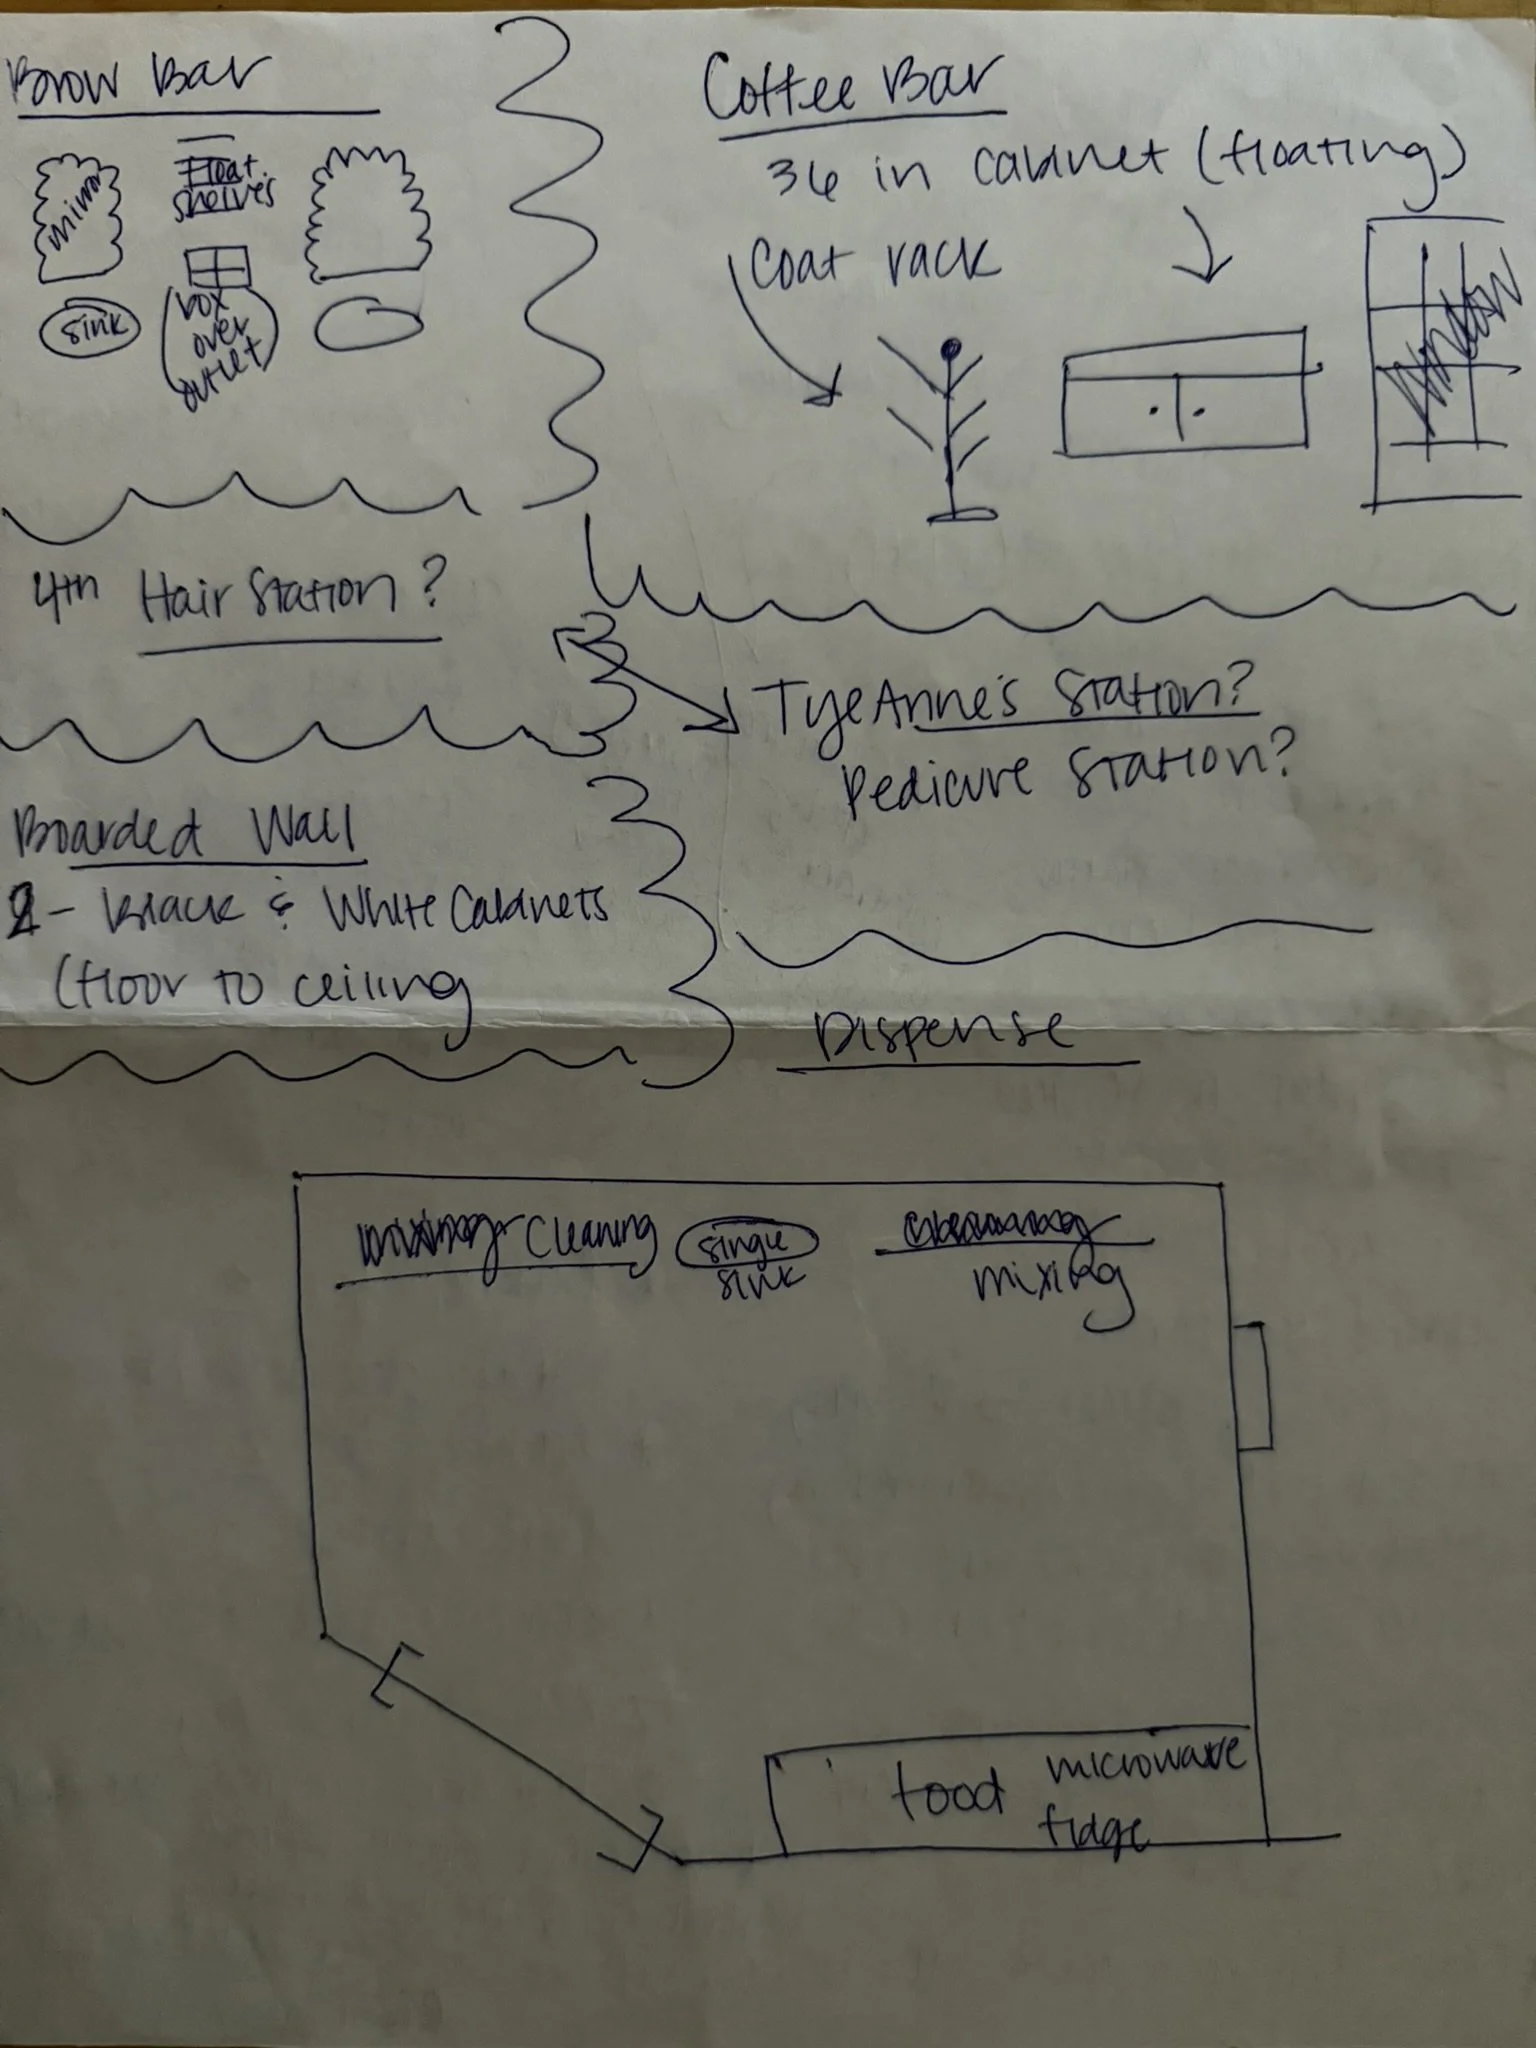 Brow Bar
mirror
Float
shelves
sink
box
over
outlet
Coffee Bar
36 in cabinet (floating)
coat rack
window
4th Hair Station?
TyeAnne's Station?
Pedicure Station?
Boarded Wall
2 - Black & White Cabinets
(floor to ceiling
Dispense
mixing cleaning
single
sink
cleaning
mixing
food microwave
fidge